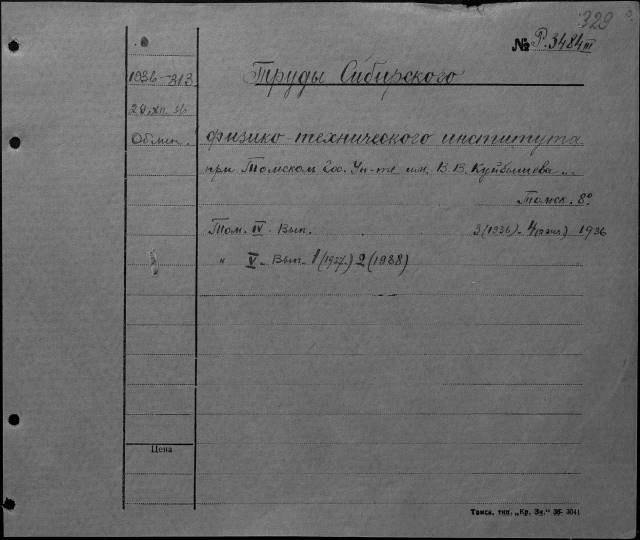 329
№ Р.3484 III
1936-313
Труды Сибирского
Обмен.
физико-технического института
при Томском Гос. Ун-те им. В. В. Куйбышева
Томск. 8°
Том. IV. Вып. 3 (1936) - 4 1936
" V - Вып. 1 (1937) 2 (1938)
Цена
Томск. тип. „Кр. Зн.“ 36- 3041